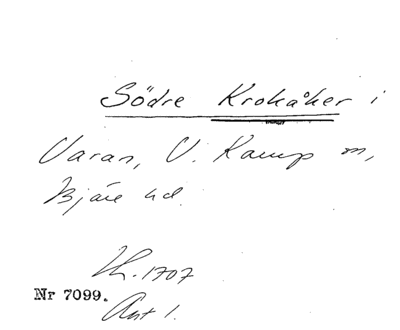 Södre Krokåker i
Varan, V. Karup sn,
Bjäre hd.
Lh. 1707
Nr 7099.
Akt 1.